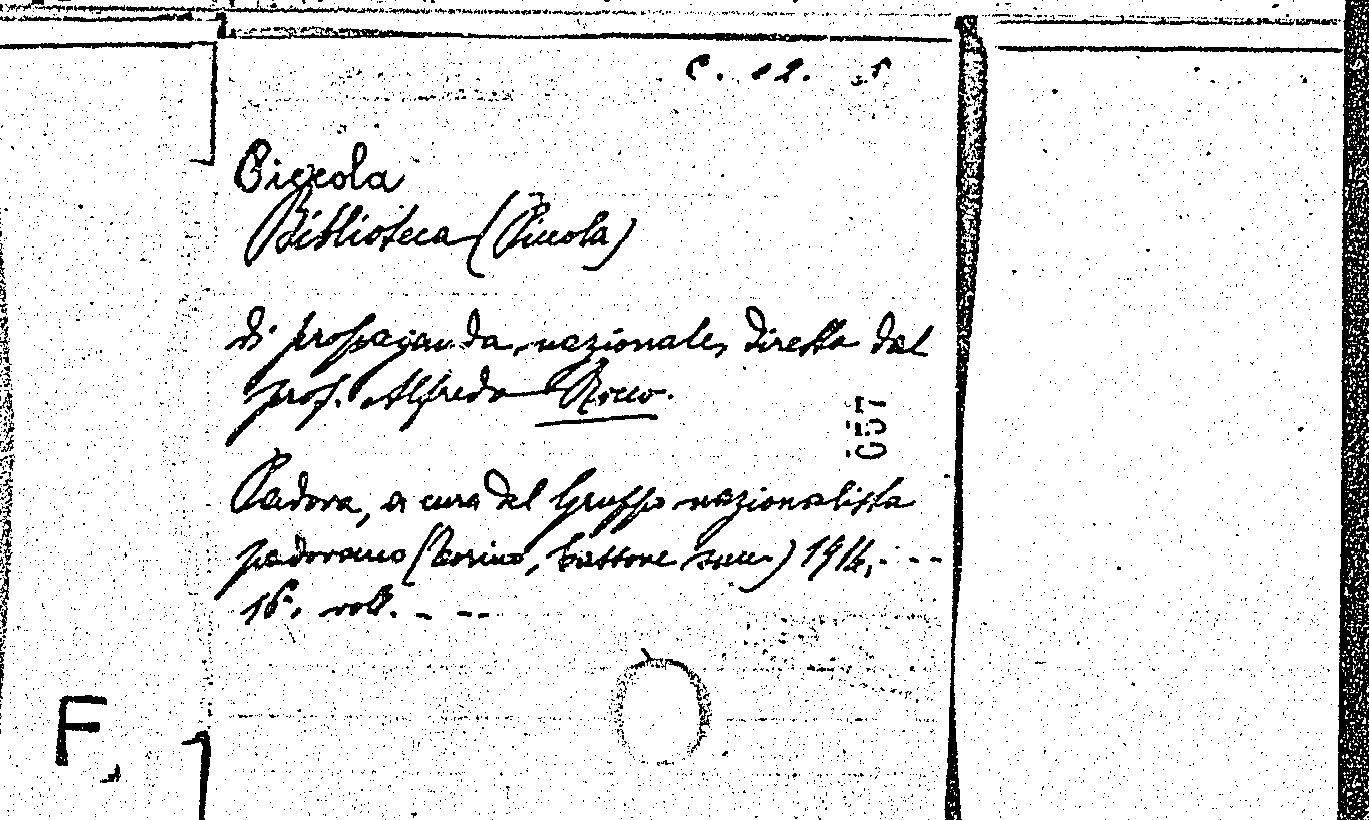 C. 12.
Piccola
Biblioteca (Piccola)
di propaganda nazionale, diretta dal
prof. Alfredo Rocco.
G57
Padova, a cura del Gruppo nazionalista
padovano (Torino, Battone succ.) 1914, - - -
16°. voll. - - -
F